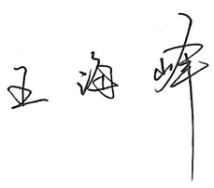 王海峰